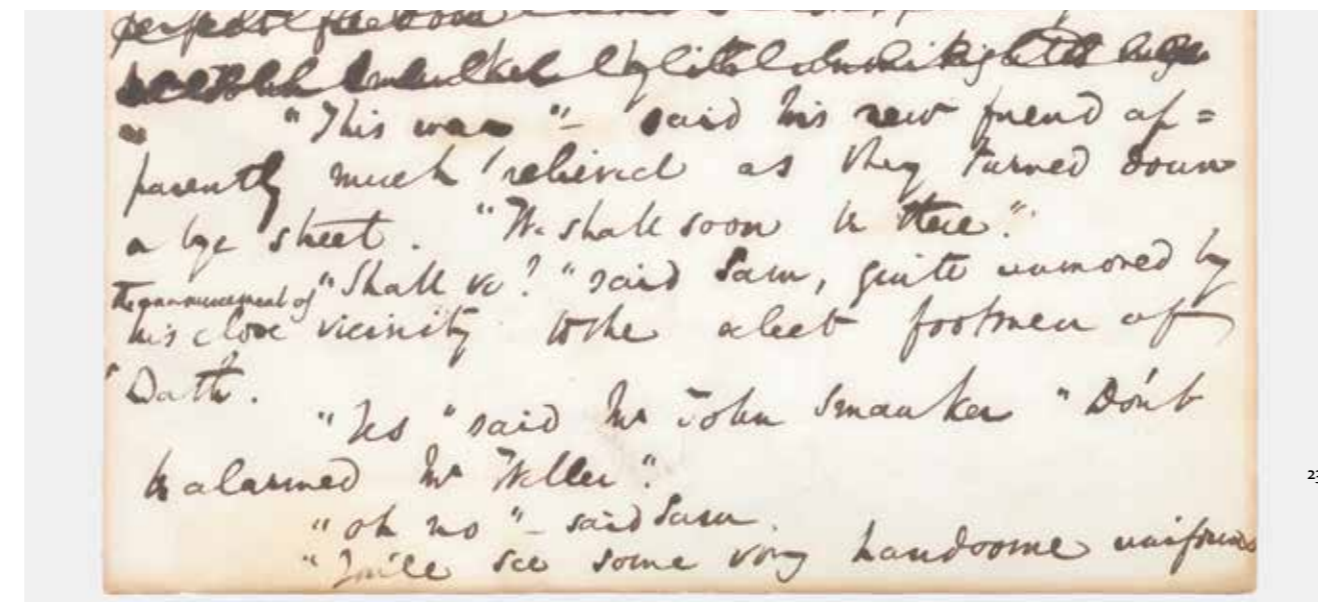 perfect freedom
"This way" – said his new friend ap=
parently much relieved as they turned down
a bye street. "We shall soon be there".
"Shall ve?" said Sam, quite unmoved by
the announcement of
his close vicinity to the select footmen of
Bath.
"Yes" said Mr John Smauker "Don't
be alarmed Mr Weller".
"oh no" – said Sam.
"You'll see some very handsome uniforms
23